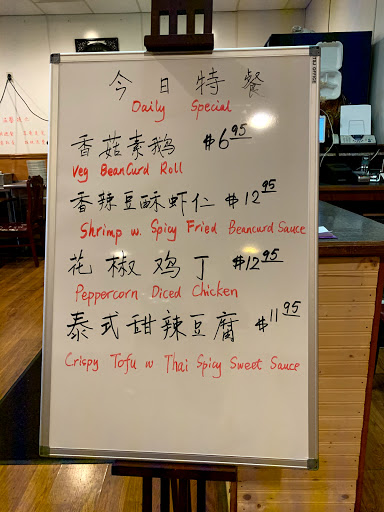 今日特餐
Daily Special
香菇素鹅 $6.95
Veg BeanCurd Roll
香辣豆酥虾仁 $12.95
Shrimp w. Spicy Fried Beancurd Sauce
花椒鸡丁 $12.95
Peppercorn Diced Chicken
泰式甜辣豆腐 $11.95
Crispy Tofu w Thai Spicy Sweet Sauce